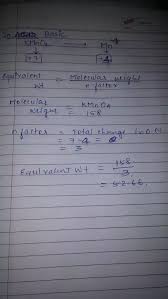 Basic
KMnO4 → Mn+4
+7 +4
Equivalent wt = Molecular weight / n factor
Molecular weight = KMnO4
158
n factor = total change in O.N
= 7-4
= 3
Equivalent wt = 158 / 3
= 52.66